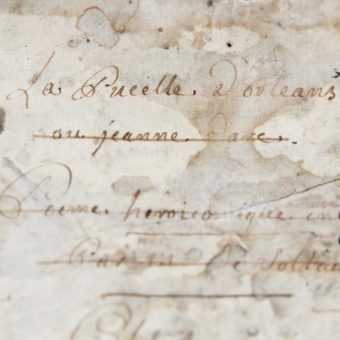 La Pucelle. D'orleans
ou jeanne darc.
Poeme heroicomique en
de Voltai